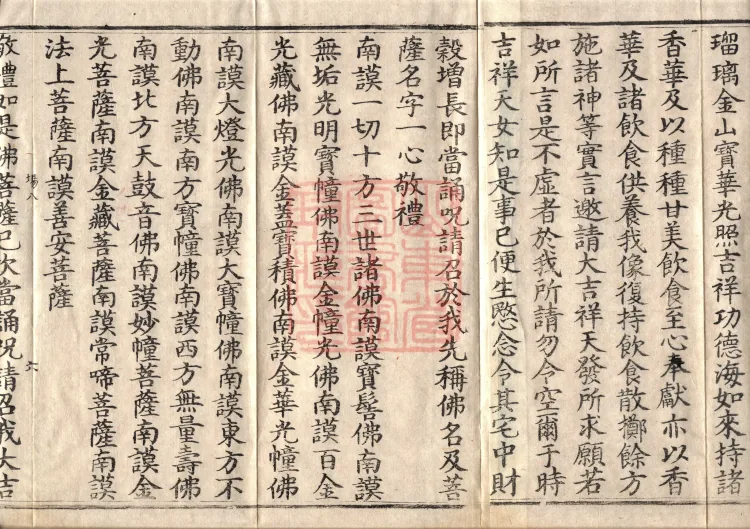 瑠璃金山寶華光照吉祥功德海如來持諸
香華及以種種甘美飲食至心奉獻亦以香
華及諸飲食供養我像復持飲食散擲餘方
施諸神等實言邀請大吉祥天發所求願若
如所言是不虛者於我所請勿令空爾于時
吉祥天女知是事已便生愍念令其宅中財
穀增長即當誦呪請召於我先稱佛名及菩
薩名字一心敬禮
南謨一切十方三世諸佛南謨寶髻佛南謨
無垢光明寶幢佛南謨金幢光佛南謨百金
光藏佛南謨金蓋寶積佛南謨金華光幢佛
南謨大燈光佛南謨大寶幢佛南謨東方不
動佛南謨南方寶幢佛南謨西方無量壽佛
南謨北方天鼓音佛南謨妙幢菩薩南謨金
光菩薩南謨金藏菩薩南謨常啼菩薩南謨
法上菩薩南謨善安菩薩
場八 六
敬禮如是佛菩薩已次當誦呪請召我大吉